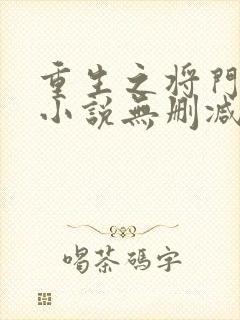 重生之将門
小説無删减
喝茶碼字